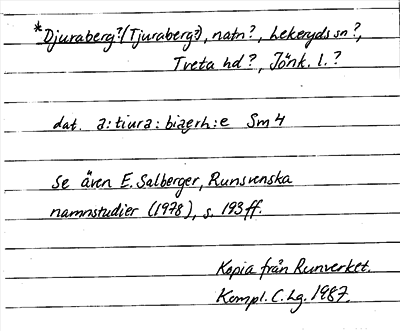 *Djuraberg? (Tjuraberg?), natn?, Lekeryds sn?,
Tveta hd?, Jönk. l.?
dat. a:tiura:biaerh:e Sm 4
Se även E. Salberger, Runsvenska
namnstudier (1978), s. 193ff.
Kopia från Runverket.
Kompl. C. Lg. 1987.